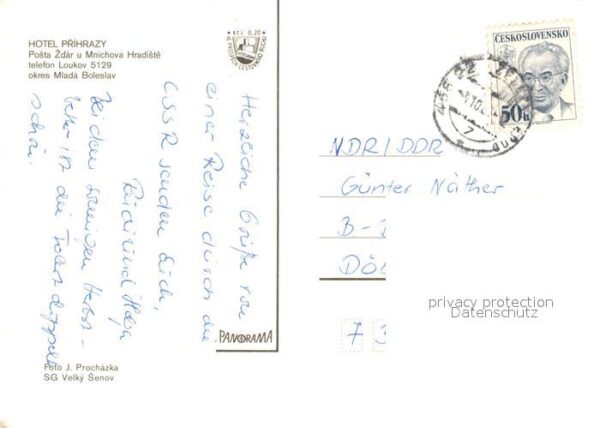 HOTEL PŘÍHRAZY
Pošta Žďár u Mnichova Hradiště
telefon Loukov 5129
okres Mladá Boleslav
Kčs 0,20
Herzliche Grüße von
einer Reise durch die
ČSSR senden Euch,
und Helga
Bei dem sonnigen Herbst-
wetter ist die Fahrt doppelt
schön.
PANORAMA
Foto J. Procházka
SG Velký Šenov
ČESKOSLOVENSKO
50h
7
NDR/DDR
Günter Näther
B-
Döb
7 3
privacy protection
Datenschutz